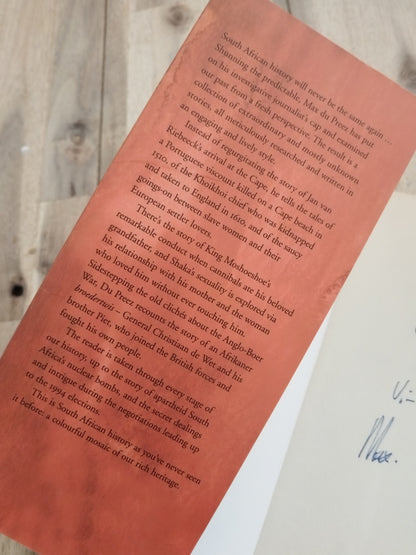 South African history will never be the same again ...
Shunning the predictable, Max du Preez has put
on his investigative journalist's cap and examined
our past from a fresh perspective. The result is a
collection of extraordinary and mostly unknown
stories, all meticulously researched and written in
an engaging and lively style.
Instead of regurgitating the story of Jan van
Riebeeck's arrival at the Cape, he tells the tales of
a Portuguese viscount killed on a Cape beach in
1510, of the Khoikhoi chief who was kidnapped
and taken to England in 1610, and of the saucy
goings-on between slave women and their
European settler lovers.
There's the story of King Moshoeshoe's
remarkable conduct when cannibals ate his beloved
grandfather, and Shaka's sexuality is explored via
his relationship with his mother and the woman
who loved him without ever touching him.
Sidestepping the old clichés about the Anglo-Boer
War, Du Preez recounts the story of an Afrikaner
broedertwis – General Christiaan de Wet and his
brother Piet, who joined the British forces and
fought his own people.
The reader is taken through every stage of
our history, up to the story of apartheid South
Africa's nuclear bombs, and the secret dealings
and intrigue during the negotiations leading up
to the 1994 elections.
This is South African history as you've never seen
it before: a colourful mosaic of our rich heritage.